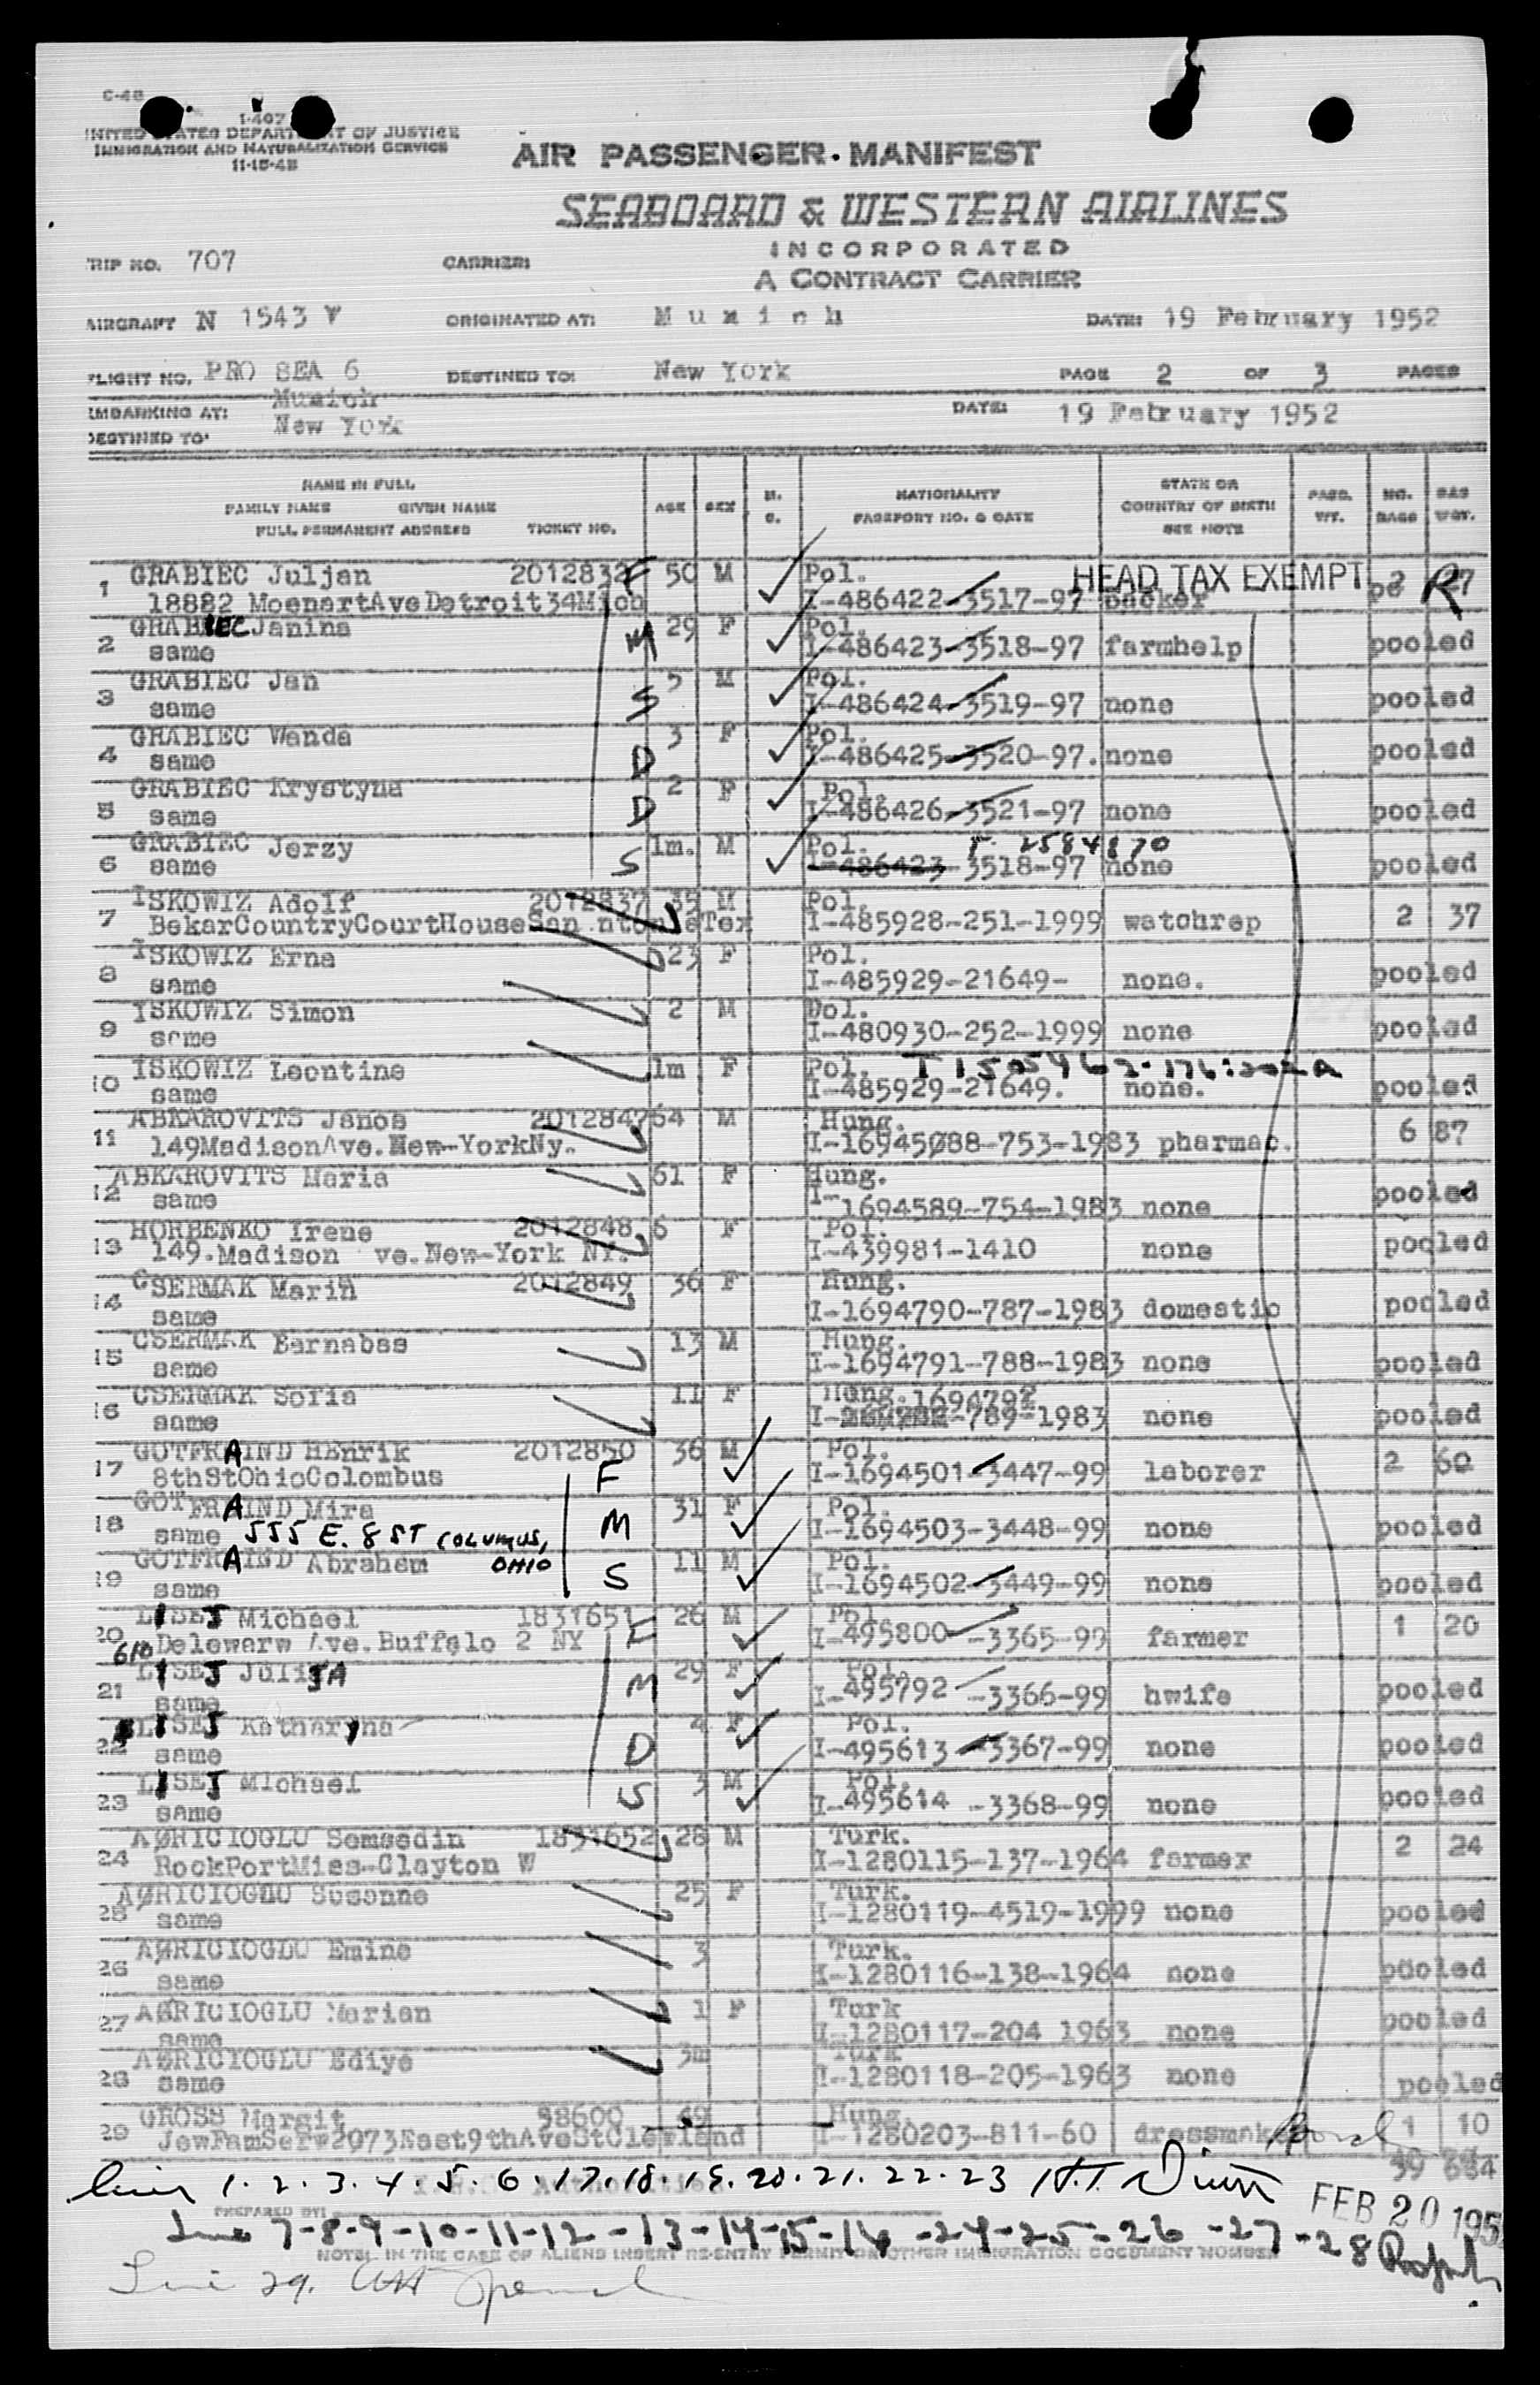 C-48
I-407
UNITED STATES DEPARTMENT OF JUSTICE
IMMIGRATION AND NATURALIZATION SERVICE
11-15-48
AIR PASSENGER MANIFEST
SEABOARD & WESTERN AIRLINES
INCORPORATED
A CONTRACT CARRIER
TRIP NO. 707 CARRIER:
AIRCRAFT N 1543 V ORIGINATED AT: Munich DATE: 19 February 1952
FLIGHT NO. PRO SEA 6 DESTINED TO: New York PAGE 2 OF 3 PAGES
EMBARKING AT: Munich DATE: 19 February 1952
DESTINED TO: New York
NAME IN FULL
FAMILY NAME GIVEN NAME
FULL PERMANENT ADDRESS TICKET NO.
AGE SEX M. C.
NATIONALITY
PASSPORT NO. & DATE
STATE OR
COUNTRY OF BIRTH
SEE NOTE
PASS. WT. NO. BAGS BAG WGT.
1 GRABIEC Juljan 2012832 F 50 M Pol. HEAD TAX EXEMPT
18882 MoenartAveDetroit34Mich I-486422-3517-97 packer
2 GRABIEC Janina M 29 F Pol.
same I-486423-3518-97 farmhelp pooled
3 GRABIEC Jan S 5 M Pol.
same I-486424-3519-97 none pooled
4 GRABIEC Wanda D 3 F Pol.
same I-486425-3520-97. none pooled
5 GRABIEC Krystyna D 2 F Pol.
same I-486426-3521-97 none pooled
6 GRABIEC Jerzy S 1m. M Pol. T-2584870
same I-486423-3518-97 none pooled
7 ISKOWIZ Adolf 2012837 35 M Pol.
BekarCountryCourtHouseSan ntonioTex I-485928-251-1999 watchrep 2 37
8 ISKOWIZ Erna 23 F Pol.
same I-485929-21649- none. pooled
9 ISKOWIZ Simon 2 M Pol.
same I-480930-252-1999 none pooled
10 ISKOWIZ Leontine 1m F Pol.
same I-485929-21649. none. pooled
11 ABKAROVITS Janos 2012847 64 M Hung.
149MadisonAve.New-YorkNy. I-16945088-753-1983 pharmac. 6 87
12 ABKAROVITS Maria 61 F Hung.
same I-1694589-754-1983 none pooled
13 HORBENKO Irene 2012848 6 F Pol.
149.Madison ve.New-York NY. I-439981-1410 none pooled
14 CSERMAK Maria 2012849 36 F Hung.
same I-1694790-787-1983 domestic pooled
15 CSERMAK Barnabas 13 M Hung.
same I-1694791-788-1983 none pooled
16 CSERMAK Sofia 11 F Hung. 1694792
same I- -789-1983 none pooled
17 GOTFRAIND HEnrik 2012850 36 M Pol.
8thStOhioColombus F I-1694501-3447-99 laborer 2 60
18 GOTFRAIND Mira 31 F Pol.
same 555 E. 8 ST COLUMUS, OHIO M I-1694503-3448-99 none pooled
19 GOTFRAIND Abraham 11 M Pol.
same S I-1694502-3449-99 none pooled
20 LISEJ Michael 1831651 26 M Pol.
610 Delewarw Ave.Buffalo 2 NY F I-495800-3365-99 farmer 1 20
21 LISEJ JuliJA M 29 F Pol.
same I-495792-3366-99 hwife pooled
22 LISEJ Katharyna 4 F Pol.
same D I-495613-3367-99 none pooled
23 LISEJ Michael S 3 M Pol.
same I-495614-3368-99 none pooled
24 AØRICIOGLU Semsedin 1831652 28 M Turk.
RockPortMiss-Clayton W I-1280115-137-1964 farmer 2 24
25 AØRICIOGLU Susanne 25 F Turk.
same I-1280119-4519-1999 none pooled
26 AØRICIOGLU Emine 3 Turk.
same I-1280116-138-1964 none pooled
27 AØRICIOGLU Marian 1 F Turk
same I-1280117-204 1963 none pooled
28 AØRICIOGLU Ediye 3m Turk
same I-1280118-205-1963 none pooled
29 GROSS Margit 98600 49 Hung.
JewFamSerw2073East9thAveStCleveland I-1280203-811-60 dressmaker 1 10
39 634
Line 1.2.3.4.5.6.17.18.19.20.21.22.23
PREPARED BY:
FEB 20 195
Line 7-8-9-10-11-12-13-14-15-16-24-25-26-27-28
NOTE: IN THE CASE OF ALIENS INSERT RE-ENTRY PERMIT OR OTHER IMMIGRATION DOCUMENT NUMBER
Line 29.